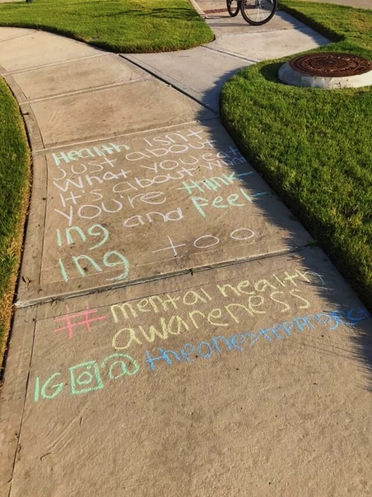 Health isn't
Just about
What you eat
It's about What
you're think-
ing and feel-
ing too
# mental health
awareness
IG